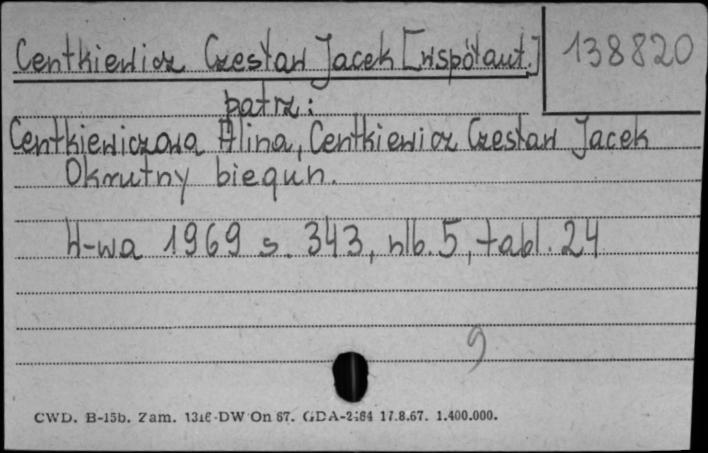 Centkiewicz Czesław Jacek [współaut.] 138820
patrz:
Centkiewiczowa Alina, Centkiewicz Czesław Jacek
Okrutny biegun.
W-wa 1969 s. 343, nlb. 5, tabl. 24
9
CWD. B-15b. Zam. 1316-DW On 67. GDA-2264 17.8.67. 1.400.000.